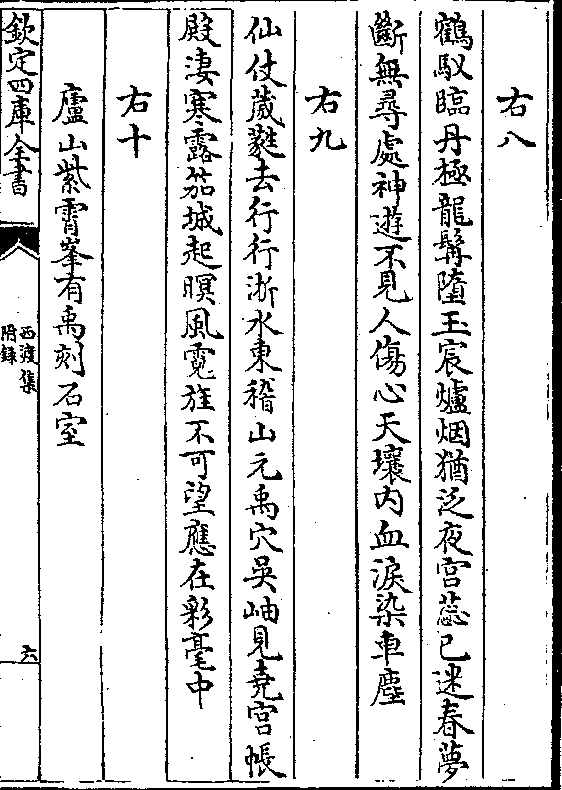 右八
鶴馭臨丹極龍髯墮玉宸爐烟猶泛夜宫蘂已迷春夢
斷無尋處神遊不見人傷心天壤内血淚染車塵
右九
仙仗葳蕤去行行浙水東稽山元禹穴吳岫見堯宫帳
殿凄寒露笳城起暝風霓旌不可望應在彩毫中
右十
廬山紫霄峯有禹刻石室
欽定四庫全書
西渡集
附錄
六